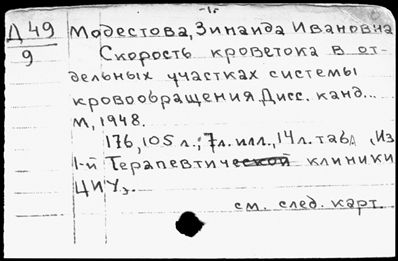 -1г
Д49 Модестова, Зинаида Ивановна
9 Скорость кроветока в от-
дельных участках системы
кровообращения Дисс. канд...
М, 1948.
176, 105 л.; 7л. илл., 14л. табл. Из
1-й Терапевтической клиники
ЦИУ,.
см. след. карт.